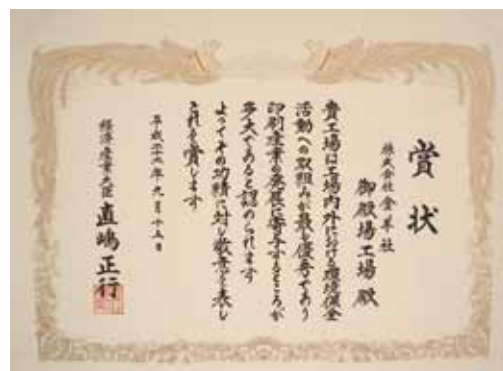 賞状
株式会社金羊社
御殿場工場殿
貴工場は工場内外における環境保全
活動への取組みが最も優秀であり
印刷産業の発展に寄与するところが
多大であると認められます
よってその功績に対し敬意を表し
これを賞します
平成二十二年九月十五日
経済産業大臣 直嶋正行